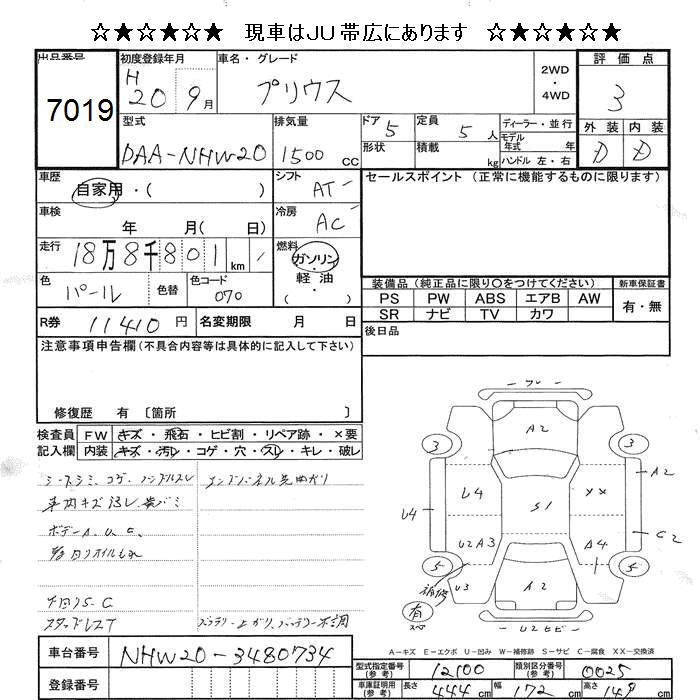 ☆★☆★☆★ 現車はJU帯広にあります ☆★☆★☆★
出品番号 初度登録年月 車名・グレード 2WD ・ 4WD 評価点
7019 H 20 9月 プリウス 3
型式 排気量 ドア 5 定員 5 人 ディーラー・並行 外装 内装
DAA-NHW20 1500 cc 形状 積載 kg モデル年式 年 D D
ハンドル 左・右
車歴 自家用・( ) シフト AT セールスポイント (正常に機能するものに限ります)
車検 年 月( 日) 冷房 AC
走行 18万8千801 km 燃料 ガソリン・軽油・( )
色 パール 色替 色コード 070
装備品 (純正品に限り〇をつけてください) 新車保証書
PS PW ABS エアB AW 有・無
SR ナビ TV カワ
R券 11410 円 名変期限 月 日 後日品
注意事項申告欄(不具合内容等は具体的に記入して下さい)
修復歴 有 〔箇所 〕
検査員 FW キズ・飛石・ヒビ割・リペア跡・×要
記入欄 内装 キズ・汚レ・コゲ・穴・スレ・キレ・破レ
シートシミ コゲ ハンドルスレ
車内キズ汚レ
ボデーA.U.C.
下回りS-C
スタッドレスT
A2
3 3
A2
U4 U4 S1 XX
C2
U2 A3 A4
5 5
補修 U3 A2
有
U2 ヒビ
A-キズ E-エクボ U-凹み W-補修跡 S-サビ C-腐食 XX-交換済
車台番号 NHW20-3480734
型式指定番号(参考) 12100 類別区分番号(参考) 0025
登録番号 車庫証明用(参考) 長さ 444 cm 幅 172 cm 高さ 149 cm